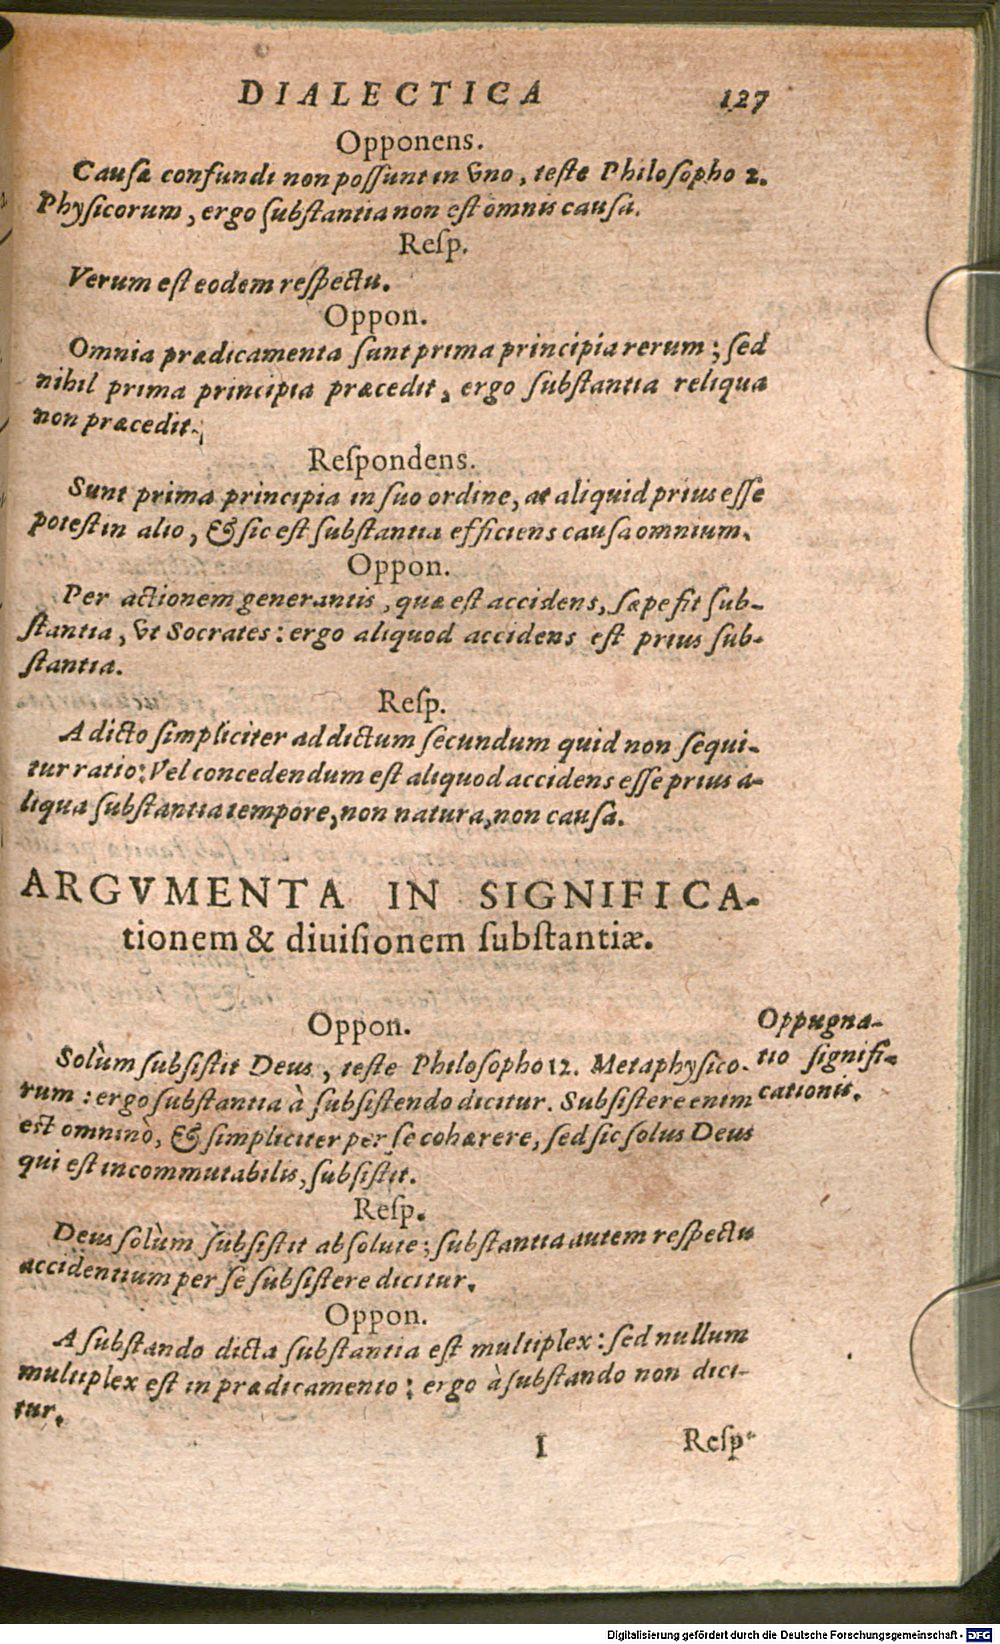 DIALECTICA 127
Opponens.
Causæ confundi non possunt in vno, teste Philosopho 2.
Physicorum, ergo substantia non est omnis causa.
Resp.
Verum est eodem respectu.
Oppon.
Omnia prædicamenta sunt prima principia rerum; sed
nihil prima principia præcedit, ergo substantia reliqua
non præcedit.
Respondens.
Sunt prima principia in suo ordine, at aliquid prius esse
potest in alio, & sic est substantia efficiens causa omnium.
Oppon.
Per actionem generantis, quæ est accidens, sæpe fit sub-
stantia, vt Socrates: ergo aliquod accidens est prius sub-
stantia.
Resp.
A dicto simpliciter ad dictum secundum quid non sequi-
tur ratio: Vel concedendum est aliquod accidens esse prius a-
liqua substantia tempore, non natura, non causa.
ARGVMENTA IN SIGNIFICA-
tionem & diuisionem substantiæ.
Oppon.
Solùm subsistit Deus, teste Philosopho 12. Metaphysico-
rum: ergo substantia à subsistendo dicitur. Subsistere enim
est omninò, & simpliciter per se cohærere, sed sic solus Deus
qui est incommutabilis, subsistit.
Oppugna-
tio signifi-
cationis.
Resp.
Deus solùm subsistit absolute; substantia autem respectu
accidentium per se subsistere dicitur.
Oppon.
A substando dicta substantia est multiplex: sed nullum
multiplex est in prædicamento: ergo à substando non dici-
tur.
I Resp
Digitalisierung gefördert durch die Deutsche Forschungsgemeinschaft - DFG